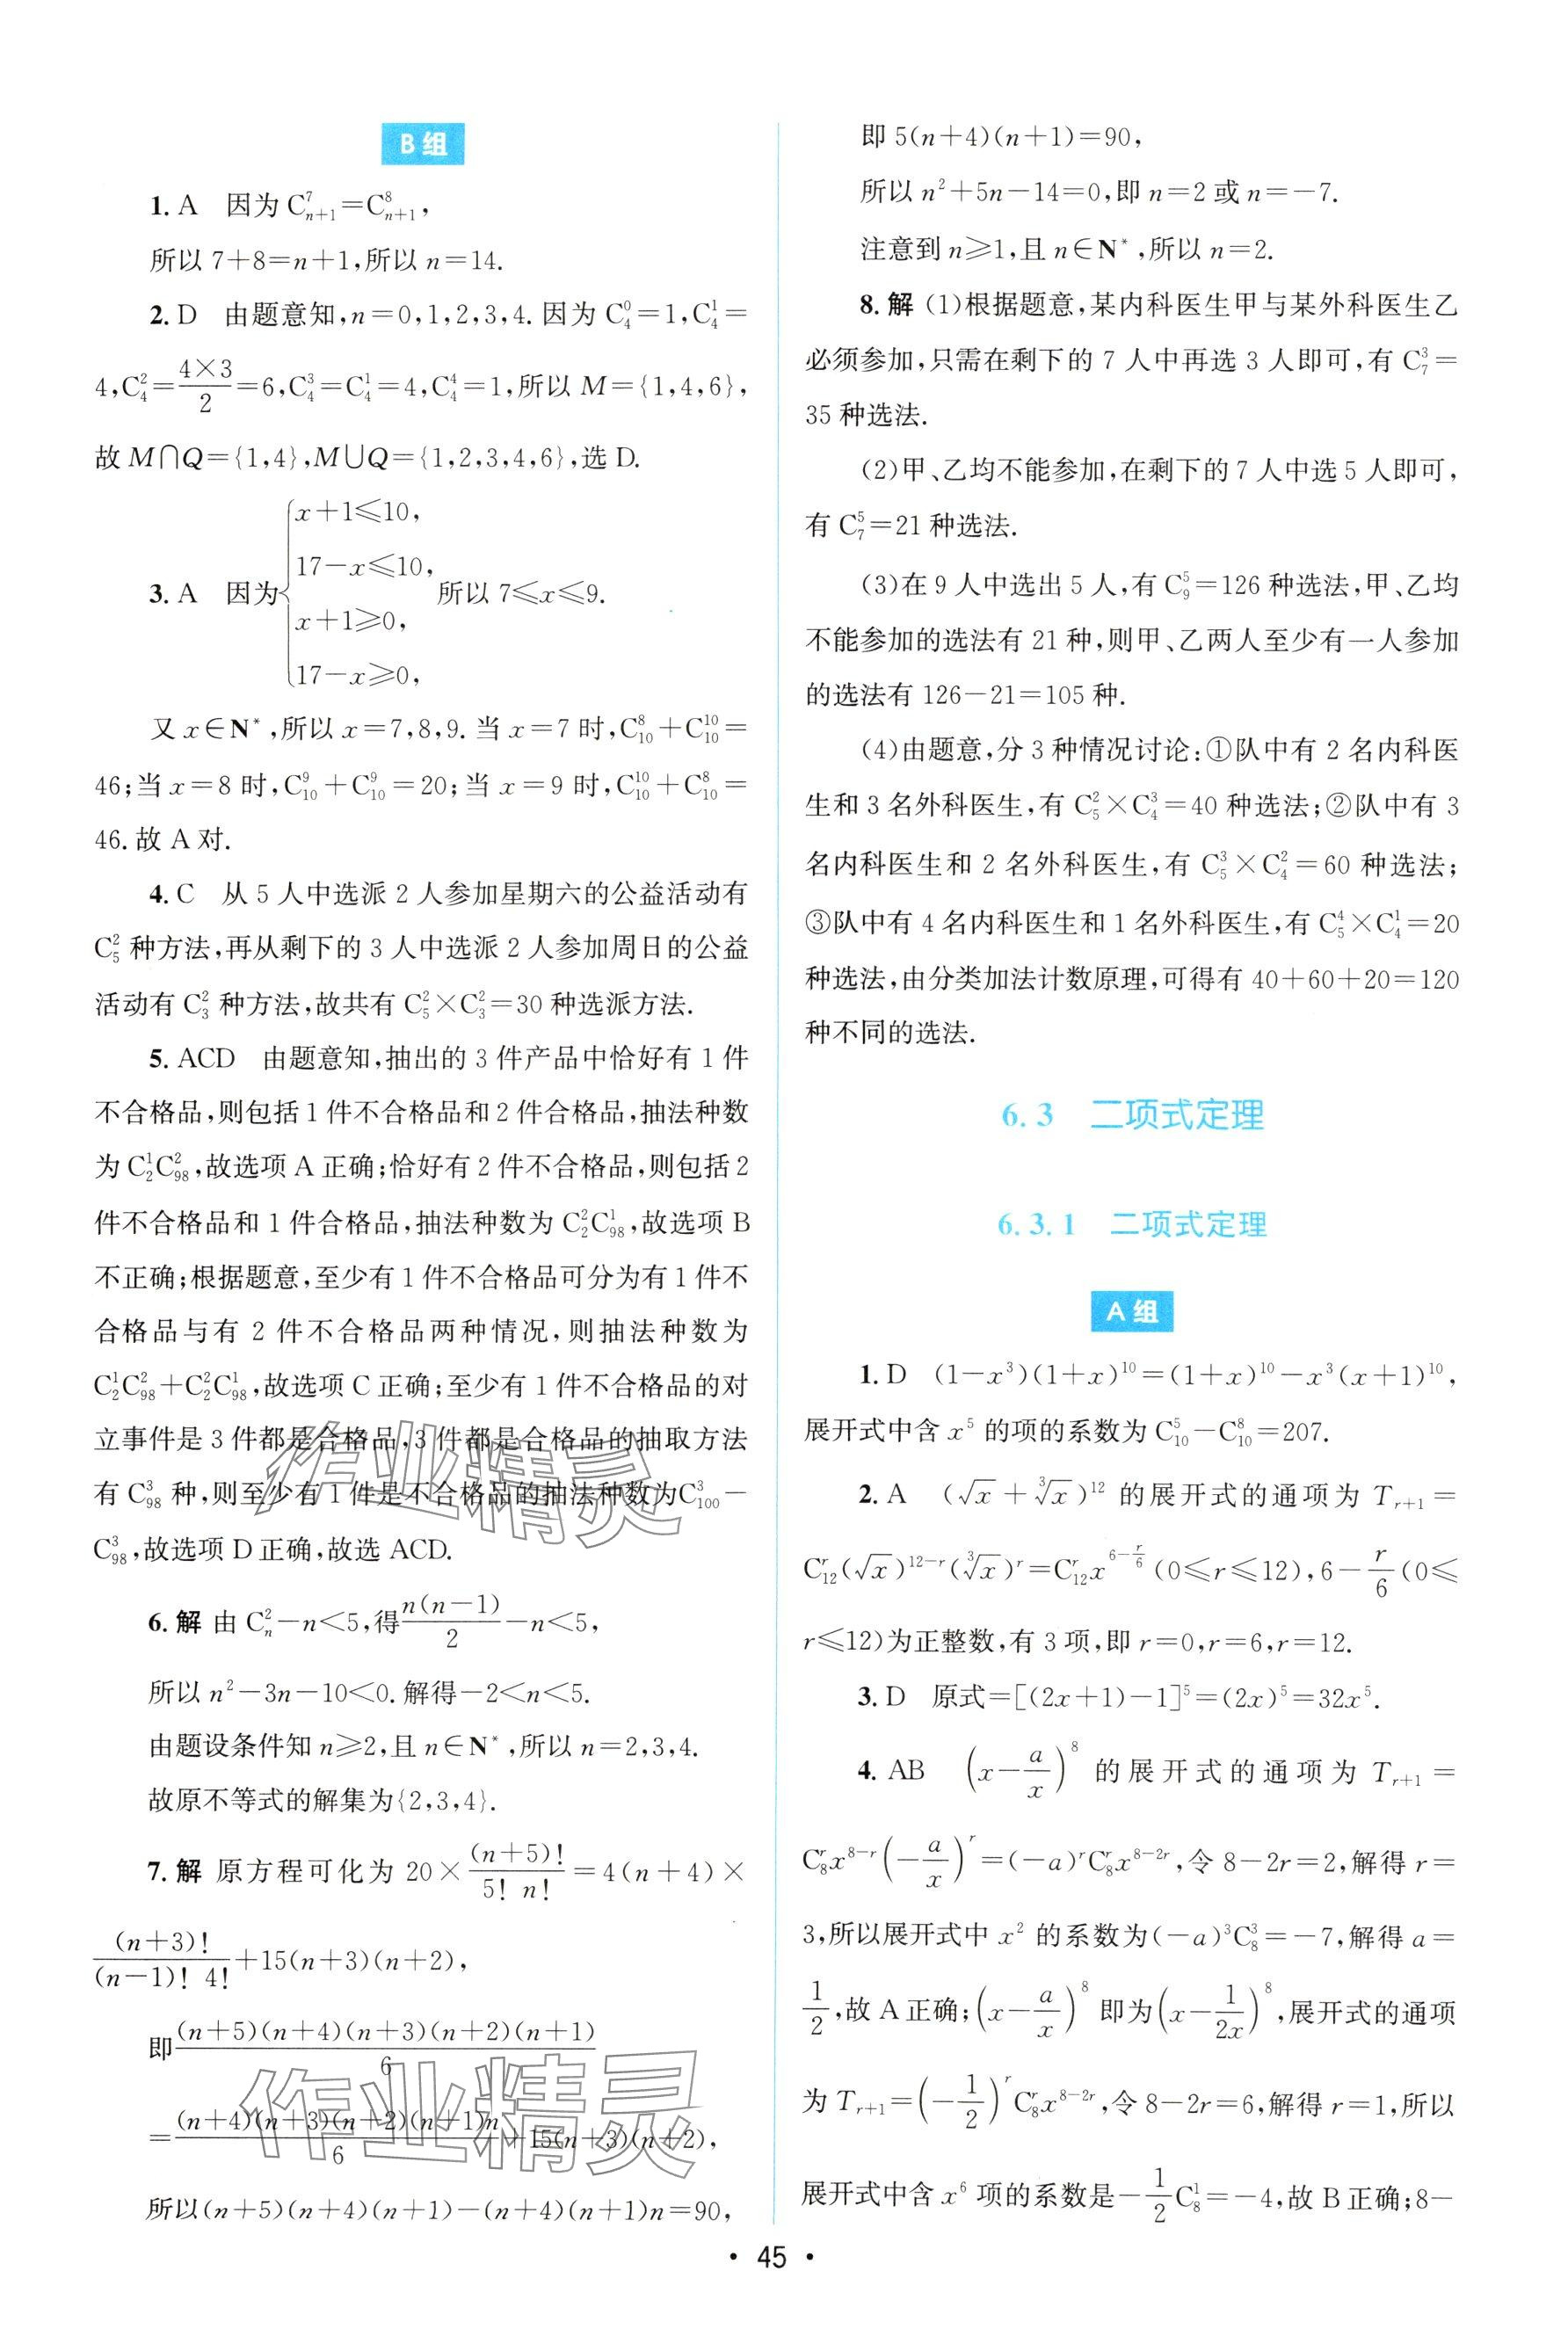 B组
1. A　因为 $C_{n+1}^{7}=C_{n+1}^{8}$,
所以 7+8=n+1,所以 n=14.
2. D　由题意知,n=0,1,2,3,4.因为 $C_4^0=1,C_4^1=$
$4,C_4^2=\frac{4×3}{2}=6,C_4^3=C_4^1=4,C_4^4=1$,所以 M={1,4,6},
故 M∩Q={1,4},M∪Q={1,2,3,4,6},选 D.
3. A　因为 $\begin{cases}x+1≤10,\\17-x≤10,\\x+1≥0,\\17-x≥0,\end{cases}$ 所以 7≤x≤9.
又 x∈N*,所以 x=7,8,9.当 x=7 时,$C_{10}^{8}+C_{10}^{10}=$
46;当 x=8 时,$C_{10}^{9}+C_{10}^{9}=20$;当 x=9 时,$C_{10}^{10}+C_{10}^{8}=$
46.故 A 对.
4. C　从 5 人中选派 2 人参加星期六的公益活动有
$C_5^2$ 种方法,再从剩下的 3 人中选派 2 人参加周日的公益
活动有 $C_3^2$ 种方法,故共有 $C_5^2×C_3^2=30$ 种选派方法.
5. ACD　由题意知,抽出的 3 件产品中恰好有 1 件
不合格品,则包括 1 件不合格品和 2 件合格品,抽法种数
为 $C_2^1C_{98}^2$,故选项 A 正确;恰好有 2 件不合格品,则包括 2
件不合格品和 1 件合格品,抽法种数为 $C_2^2C_{98}^1$,故选项 B
不正确;根据题意,至少有 1 件不合格品可分为有 1 件不
合格品与有 2 件不合格品两种情况,则抽法种数为
$C_2^1C_{98}^2+C_2^2C_{98}^1$,故选项 C 正确;至少有 1 件不合格品的对
立事件是 3 件都是合格品,3 件都是合格品的抽取方法
有 $C_{98}^3$ 种,则至少有 1 件是不合格品的抽法种数为$C_{100}^3-$
$C_{98}^3$,故选项 D 正确,故选 ACD.
6. 解 由 $C_n^2-n<5$,得$\frac{n(n-1)}{2}-n<5$,
所以 $n^2-3n-10<0$.解得-2<n<5.
由题设条件知 n≥2,且 n∈N*,所以 n=2,3,4.
故原不等式的解集为{2,3,4}.
7. 解 原方程可化为 $20×\frac{(n+5)!}{5!\ n!}=4(n+4)×$
$\frac{(n+3)!}{(n-1)!\ 4!}+15(n+3)(n+2)$,
即$\frac{(n+5)(n+4)(n+3)(n+2)(n+1)}{6}$
$=\frac{(n+4)(n+3)(n+2)(n+1)n}{6}+15(n+3)(n+2)$,
所以(n+5)(n+4)(n+1)-(n+4)(n+1)n=90,
即 5(n+4)(n+1)=90,
所以 $n^2+5n-14=0$,即 n=2 或 n=-7.
注意到 n≥1,且 n∈N*,所以 n=2.
8. 解 (1)根据题意,某内科医生甲与某外科医生乙
必须参加,只需在剩下的 7 人中再选 3 人即可,有 $C_7^3=$
35 种选法.
(2)甲、乙均不能参加,在剩下的 7 人中选 5 人即可,
有 $C_7^5=21$ 种选法.
(3)在 9 人中选出 5 人,有 $C_9^5=126$ 种选法,甲、乙均
不能参加的选法有 21 种,则甲、乙两人至少有一人参加
的选法有 126-21=105 种.
(4)由题意,分 3 种情况讨论:①队中有 2 名内科医
生和 3 名外科医生,有 $C_5^2×C_4^3=40$ 种选法;②队中有 3
名内科医生和 2 名外科医生,有 $C_5^3×C_4^2=60$ 种选法;
③队中有 4 名内科医生和 1 名外科医生,有 $C_5^4×C_4^1=20$
种选法,由分类加法计数原理,可得有 40+60+20=120
种不同的选法.
6.3　二项式定理
6.3.1　二项式定理
A组
1. D　$(1-x^3)(1+x)^{10}=(1+x)^{10}-x^3(x+1)^{10}$,
展开式中含 $x^5$ 的项的系数为 $C_{10}^5-C_{10}^8=207$.
2. A　$(\sqrt{x}+\sqrt[3]{x})^{12}$ 的展开式的通项为 $T_{r+1}=$
$C_{12}^r(\sqrt{x})^{12-r}(\sqrt[3]{x})^r=C_{12}^rx^{6-\frac{r}{6}}(0≤r≤12),6-\frac{r}{6}(0≤$
r≤12)为正整数,有 3 项,即 r=0,r=6,r=12.
3. D　原式=$[(2x+1)-1]^5=(2x)^5=32x^5$.
4. AB　$\left(x-\frac{a}{x}\right)^8$ 的展开式的通项为 $T_{r+1}=$
$C_8^rx^{8-r}\left(-\frac{a}{x}\right)^r=(-a)^rC_8^rx^{8-2r}$,令 8-2r=2,解得 r=
3,所以展开式中 $x^2$ 的系数为$(-a)^3C_8^3=-7$,解得 a=
$\frac{1}{2}$,故 A 正确;$\left(x-\frac{a}{x}\right)^8$ 即为$\left(x-\frac{1}{2x}\right)^8$,展开式的通项
为 $T_{r+1}=\left(-\frac{1}{2}\right)^rC_8^rx^{8-2r}$,令 8-2r=6,解得 r=1,所以
展开式中含 $x^6$ 项的系数是$-\frac{1}{2}C_8^1=-4$,故 B 正确;8-
· 45 ·
作业精灵
作业精灵